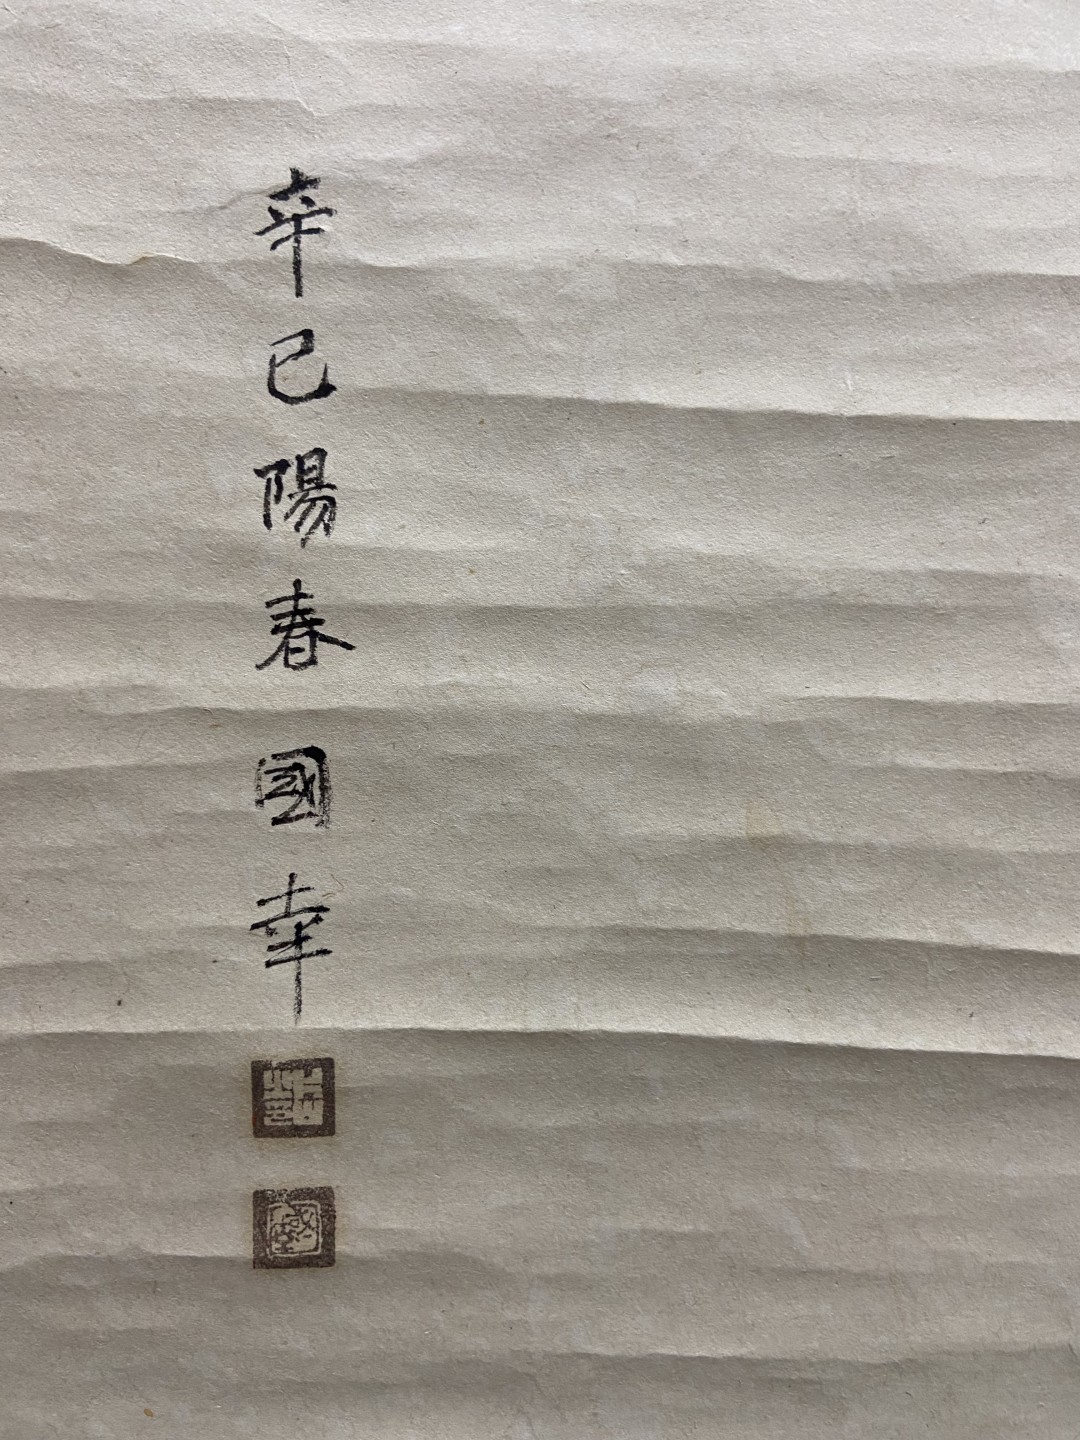 辛巳陽春國幸